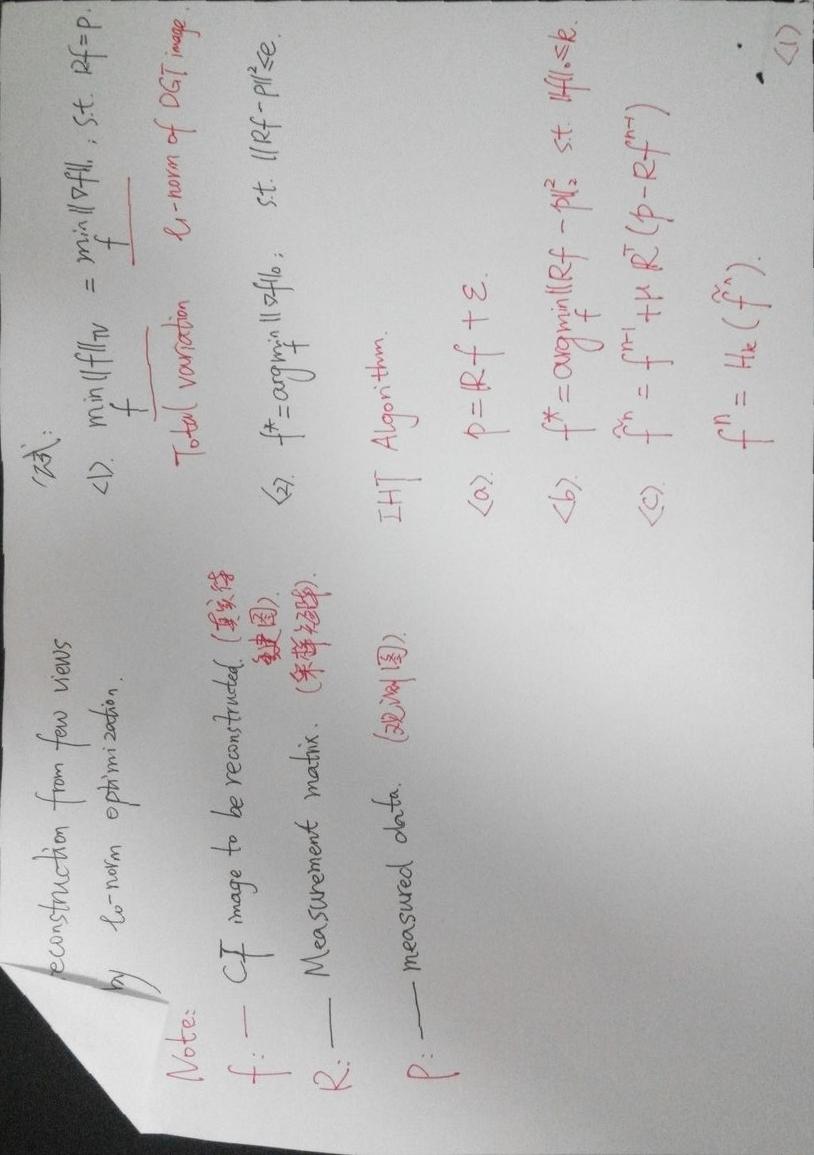 econstruction from few views
by l₀-norm optimization.
Note:
f: — CT image to be reconstructed. (真实待
重建图).
R: — Measurement matrix. (采样矩阵).
P: — measured data. (观测图).
公式:
<1>. min_f ||f||_TV = min_f ||∇f||₁; s.t. Rf=p.
Total variation l₁-norm of DGT image.
<2>. f* = argmin_f ||∇f||₀; s.t. ||Rf-p||² ≤ e.
IHT Algorithm.
<a>. p = Rf + ε.
<b>. f* = argmin_f ||Rf - p||₂² s.t. ||f||₀ ≤ k.
<c>. f̃ⁿ = fⁿ⁻¹ + μ Rᵀ(p - Rfⁿ⁻¹)
fⁿ = H_k(f̃ⁿ).
<1>